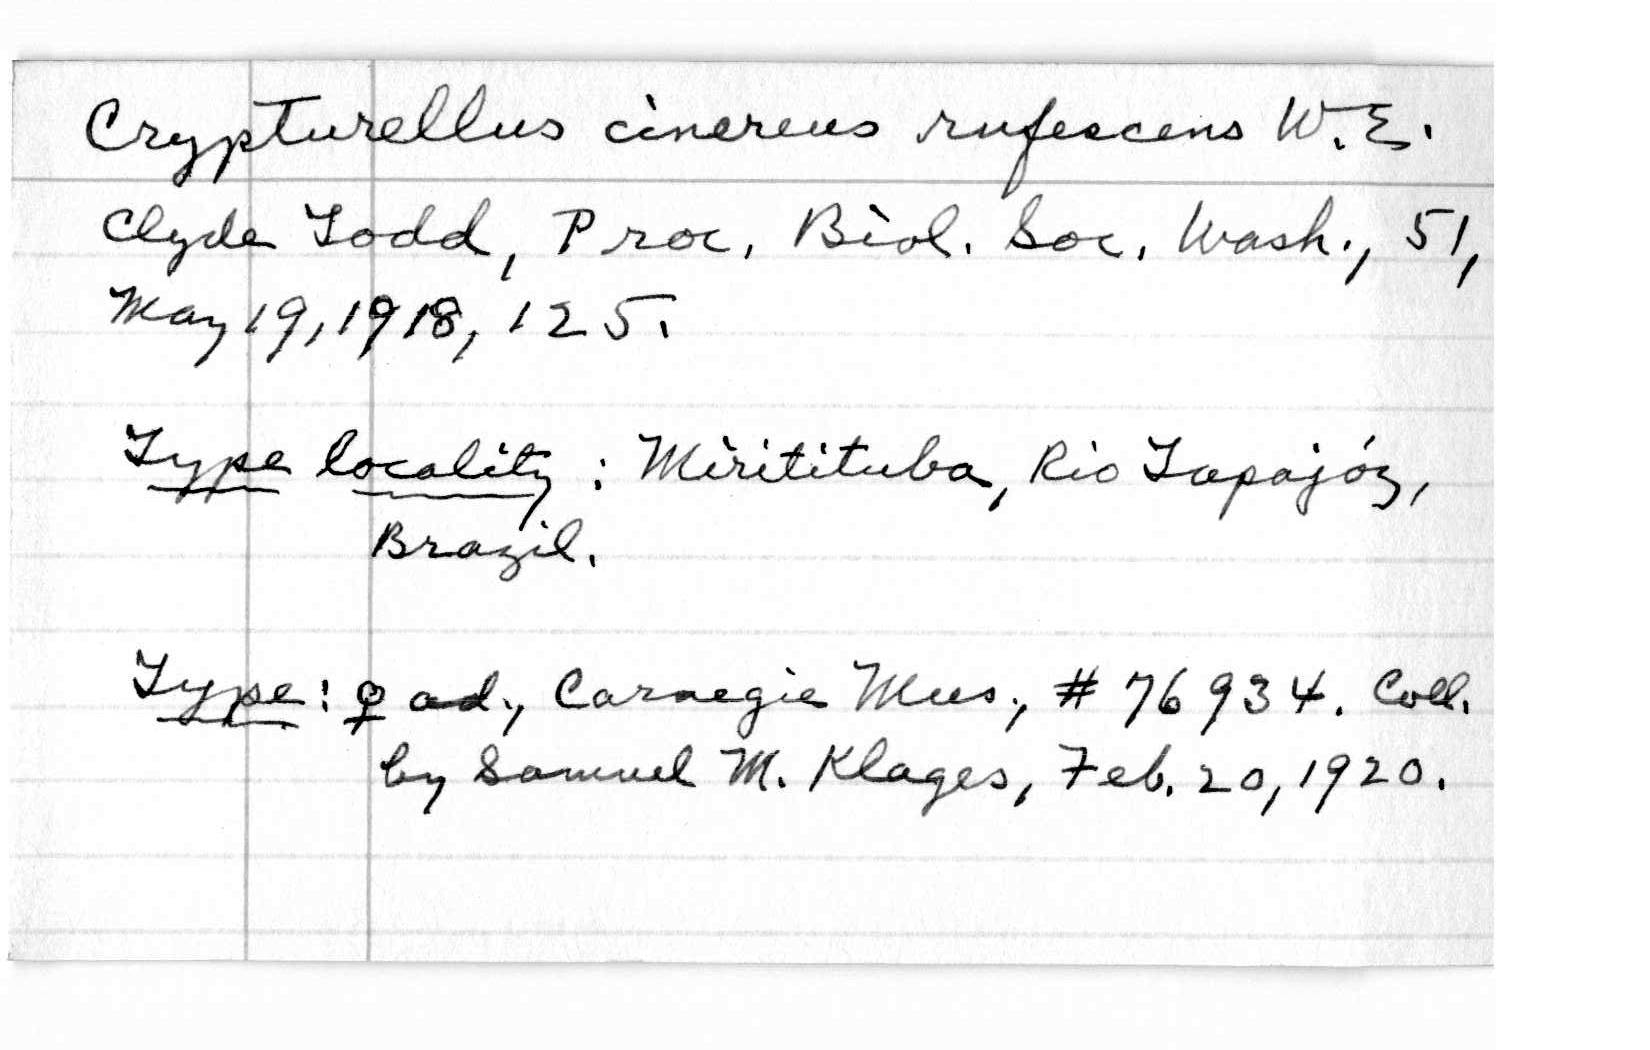 Crypturellus cinereus rufescens W.E.
Clyde Todd, Proc. Biol. Soc. Wash., 51,
May 19, 1918, 125.
Type locality: Miritituba, Rio Tapajóz,
Brazil.
Type: ♀ ad., Carnegie Mus., # 76934. Coll.
by Samuel M. Klages, Feb. 20, 1920.